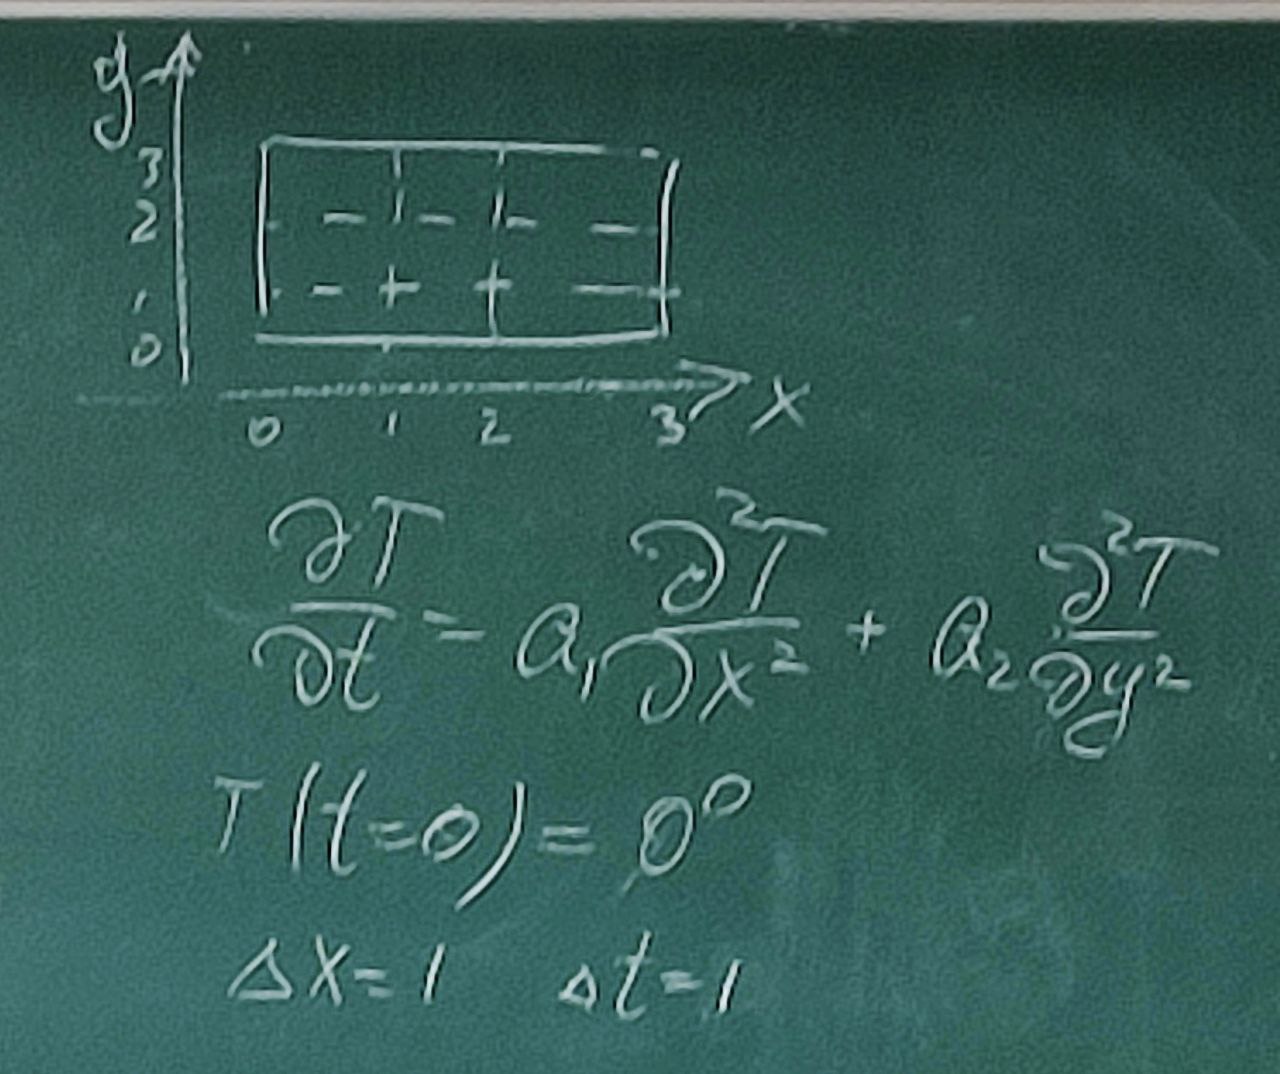 y
3
2
1
0
0 1 2 3 x
∂T/∂t = a₁ ∂²T/∂x² + a₂ ∂²T/∂y²
T(t=0) = 0⁰
Δx=1 Δt=1